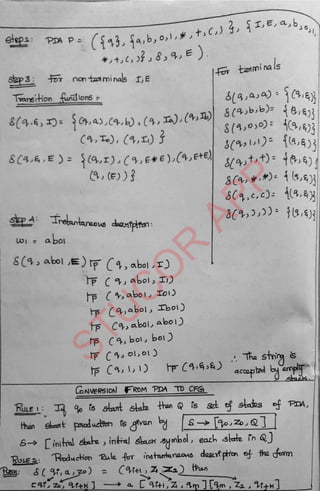 step2: PDA P = ({q}, {a,b,0,1,*,+,(,)}, {I,E,a,b,0,1,
*,+,(,)}, δ, q, E).
step 3: For non terminals I,E
Transition functions:
δ(q,ε,I) = {(q,a),(q,b),(q,Ia),(q,Ib)
(q,I0),(q,I1)}
δ(q,ε,E) = {(q,I),(q,E*E),(q,E+E),
(q,(E))}
For terminals
δ(q,a,a) = {(q,ε)}
δ(q,b,b) = {(q,ε)}
δ(q,0,0) = {(q,ε)}
δ(q,1,1) = {(q,ε)}
δ(q,+,+) = {(q,ε)}
δ(q,*,*) = {(q,ε)}
δ(q,(,() = {(q,ε)}
δ(q,),)) = {(q,ε)}
step 4: Instantaneous description:
w1 = ab01
δ(q, ab01, E) ⊢P (q, ab01, I)
⊢P (q, ab01, I1)
⊢P (q, ab01, I01)
⊢P (q, ab01, Ib01)
⊢P (q, ab01, ab01)
⊢P (q, b01, b01)
⊢P (q, 01, 01)
⊢P (q, 1, 1) ⊢P (q,ε,ε)
∴ The string is
accepted by empty
stack.
CONVERSION FROM PDA TO CFG
RULE 1: If q0 is start state then Q is set of states of PDA,
then start production is given by S → [q0, Z0, Q]
S → [initial state, initial stack symbol, each state in Q]
RULE 2: Production Rule for instantaneous description of the form
δ(qi, a, z0) = (qi+1, Z1 Z2) then
[qi, z0, qi+k] → a [qi+1, Z1, qm] [qm, Z2, qi+k]
STUCOR APP